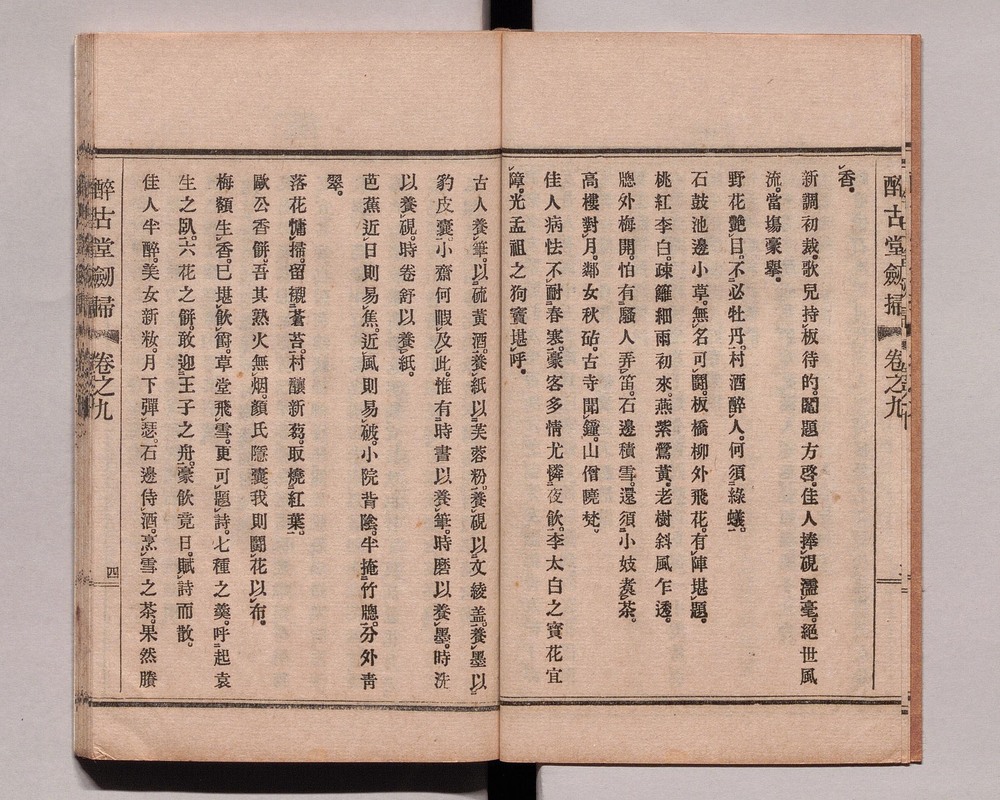 醉古堂劍掃 卷之九
香。
新調初裁。歌兒持板待的。鬮題方啓。佳人捧硯濡毫。絕世風
流。當塲豪擧。
野花艷目。不必牡丹。村酒醉人。何須綠蟻。
石鼓池邊小草。無名可鬪。板橋柳外飛花。有陣堪題。
桃紅李白。疎籬細雨初來。燕紫鶯黃。老樹斜風乍透。
牕外梅開。怕有騷人弄笛。石邊積雪。還須小妓煑茶。
高樓對月。鄰女秋砧。古寺聞鐘。山僧曉梵。
佳人病怯不耐春寒。豪客多情尤憐夜飮。李太白之寶花宜
障。光孟祖之狗竇堪呼。
古人養筆。以硫黃酒。養紙以芙蓉粉。養硯以文綾蓋。養墨以
豹皮囊。小齋何暇及此。惟有時書以養筆。時磨以養墨。時洗
以養硯。時卷舒以養紙。
芭蕉近日則易焦。近風則易破。小院背陰。半掩竹牕。分外靑
翠。
落花慵掃。留襯蒼苔。村釀新蒭。取燒紅葉。
歐公香餅。吾其熟火無烟。顏氏隱囊。我則鬪花以布。
梅額生香。已堪飮爵。草堂飛雪。更可題詩。七種之羹。呼起袁
生之臥。六花之餠。敢迎王子之舟。豪飮竟日。賦詩而散。
佳人半醉。美女新妝。月下彈瑟。石邊侍酒。烹雪之茶。果然賸
醉古堂劍掃 卷之九 四